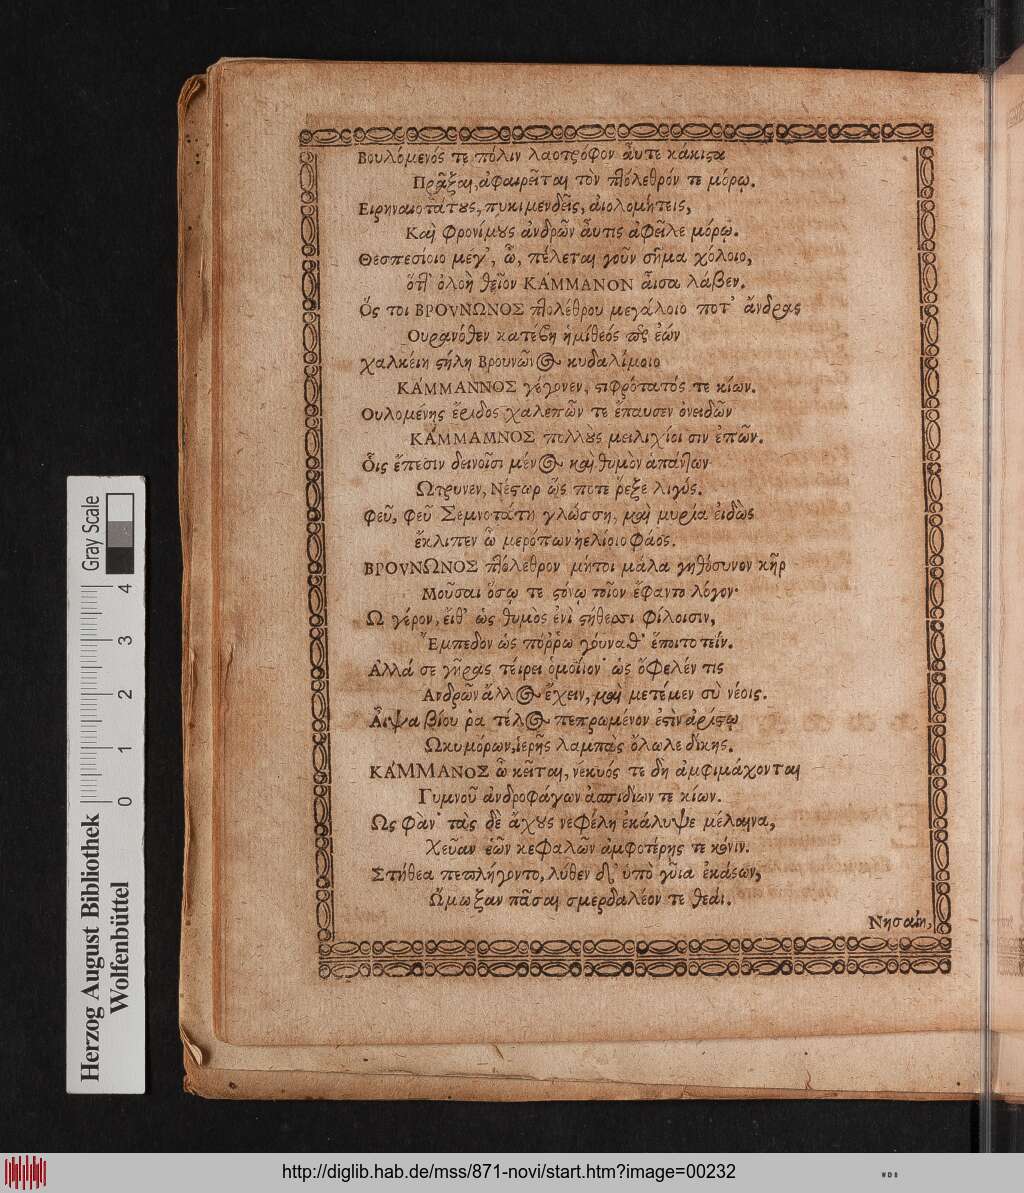 Βουλόμενός τε πόλιν λαοτρόφον αὖτε κάκιστα
Πρᾶξαι, ἀφαιρεῖται τὸν πτόλεθρόν τε μόρῳ.
Εἰρηναιοτάτους, πυκιμενδεῖς, αἰολομήτεις,
Καὶ φρονίμους ἀνδρῶν αὖτις ἀφεῖλε μόρῳ.
Θεσπεσίοιο μέγ', ὦ, πέλεται γοῦν σῆμα χόλοιο,
ὅτθ' ὀλοὴ θεῖον ΚΑΜΜΑΝΟΝ αἶσα λάβεν.
Ὅς τοι ΒΡΟΥΝΩΝΟΣ πτολέθρου μεγάλοιο ποτ' ἄνδρας
Οὐρανόθεν κατέβη ἡμίθεός ὣς ἐών
χαλκέιη στήλη Βρουνῶνος κυδαλίμοιο
ΚΑΜΜΑΝΝΟΣ γέγονεν, στιφρότατός τε κίων.
Οὐλομένης ἔριδος χαλεπῶν τε ἔπαυσεν ὀνειδῶν
ΚΑΜΜΑΜΝΟΣ πολλοὺς μειλιχίοισιν ἐπῶν.
Οἷς ἔπεσιν δεινοῖσι μένος καὶ θυμὸν ἁπάντων
Ὤτρυνεν, Νέστωρ ὥς ποτε ῥεξε λιγύς.
φεῦ, φεῦ Σεμνοτάτη γλώσση, καὶ μυρία εἰδὼς
ἔκλιπεν ὦ μερόπων ἠελίοιο φάος.
ΒΡΟΥΝΩΝΟΣ πτόλεθρον μήτοι μάλα γηθόσυνον κῆρ
Μοῦσαι ὅσῳ τε στόνῳ τοῖον ἔφαντο λόγον·
Ὦ γέρον, εἴθ' ὡς θυμὸς ἐνὶ στήθεσσι φίλοισιν,
Ἔμπεδον ὡς πόῤῥω γόυναθ' ἕποιτο τεΐν.
Ἀλλά σε γῆρας τείρει ὁμοίϊον· ὡς ὄφελέν τις
Ἀνδρῶν ἄλλος ἔχειν, καὶ μετέμεν σὺ νέοις.
Αἶψα βίου ῥα τέλος πεπρωμένον ἐστὶν ἀρίστῳ
Ὠκυμόρων, ἱερῆς λαμπὰς ὄλωλε δίκης.
ΚΑΜΜΑΝΟΣ ὦ κεῖται, νέκυός τε δὴ ἀμφιμάχονται
Γυμνοῦ ἀνδροφάγων ἀσπιδίων τε κίων.
Ὣς φαν· τὰς δὲ ἄχους νεφέλη ἐκάλυψε μέλαινα,
Χεῦαν ἑῶν κεφαλῶν ἀμφοτέρῃς τε κόνιν.
Στήθεα πεπλήγοντο, λύθεν δ' ὑπὸ γῦια ἑκάστων,
Ὤμωξαν πᾶσαι σμερδαλέον τε θεάι.
Νησαίη,
Gray Scale
4
3
2
1
0
Herzog August Bibliothek
Wolfenbüttel
http://diglib.hab.de/mss/871-novi/start.htm?image=00232